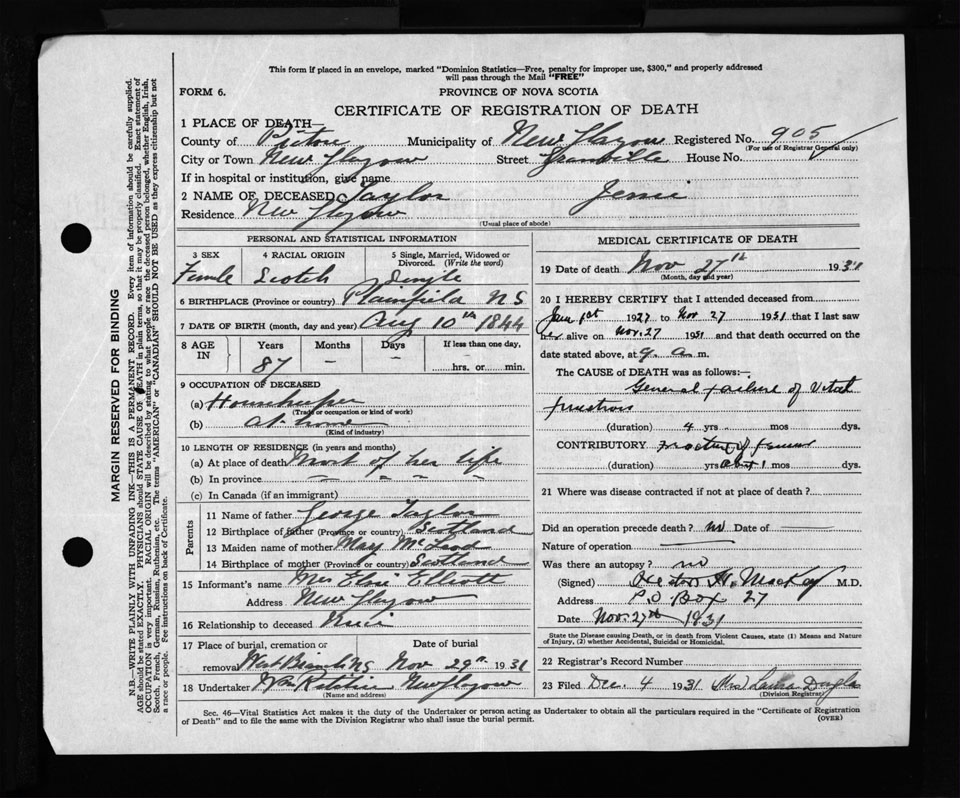 This form if placed in an envelope, marked "Dominion Statistics—Free, penalty for improper use, $300," and properly addressed
will pass through the Mail "FREE"
FORM 6. PROVINCE OF NOVA SCOTIA
CERTIFICATE OF REGISTRATION OF DEATH
1 PLACE OF DEATH—
County of Pictou Municipality of New Glasgow Registered No. 905
(For use of Registrar General only)
City or Town New Glasgow Street Granville House No.
If in hospital or institution, give name
2 NAME OF DECEASED Taylor Jessie
Residence New Glasgow
(Usual place of abode)
PERSONAL AND STATISTICAL INFORMATION
3 SEX 4 RACIAL ORIGIN 5 Single, Married, Widowed or Divorced. (Write the word)
Female Scotch Single
6 BIRTHPLACE (Province or country) Plainfield N S
7 DATE OF BIRTH (month, day and year) Aug 10th 1844
8 AGE IN Years Months Days If less than one day,
87 – – hrs. or min.
9 OCCUPATION OF DECEASED
(a) Housekeeper
(Trade or occupation or kind of work)
(b) at home
(Kind of industry)
10 LENGTH OF RESIDENCE (in years and months)
(a) At place of death Most of her life
(b) In province
(c) In Canada (if an immigrant)
Parents
11 Name of father George Taylor
12 Birthplace of father (Province or country) Scotland
13 Maiden name of mother May McLeod
14 Birthplace of mother (Province or country) Scotland
15 Informant's name Mrs Elsie Elliott
Address New Glasgow
16 Relationship to deceased Niece
17 Place of burial, cremation or removal Date of burial
West Branch NS Nov 29th 1931
18 Undertaker New Glasgow
(Name and address)
MEDICAL CERTIFICATE OF DEATH
19 Date of death Nov 27th 1931
(Month, day and year)
20 I HEREBY CERTIFY that I attended deceased from
1st 1927 to Nov 27 1931 that I last saw
her alive on Nov. 27 1931 and that death occurred on the
date stated above, at 9 a m.
The CAUSE OF DEATH was as follows:—
General failure of
functions
(duration) 4 yrs mos dys.
CONTRIBUTORY Fracture of femur
(duration) yrs abt 1 mos dys.
21 Where was disease contracted if not at place of death?
Did an operation precede death? no Date of
Nature of operation
Was there an autopsy? no
(Signed) Hector H. MacKay M.D.
Address P.O Box 27
Date Nov. 27th 1931
State the Disease causing Death, or in death from Violent Causes, state (1) Means and Nature
of Injury, (2) whether Accidental, Suicidal or Homicidal.
22 Registrar's Record Number
23 Filed Dec. 4 1931 (Mrs) Laura Douglas
Division Registrar
Sec. 46—Vital Statistics Act makes it the duty of the Undertaker or person acting as Undertaker to obtain all the particulars required in the "Certificate of Registration
of Death" and to file the same with the Division Registrar who shall issue the burial permit.
(OVER)
MARGIN RESERVED FOR BINDING
N.B.—WRITE PLAINLY WITH UNFADING INK—THIS IS A PERMANENT RECORD. Every item of information should be carefully supplied.
AGE should be stated EXACTLY. PHYSICIANS should STATE CAUSE OF DEATH in plain terms, so that it may be properly classified. Exact statement of
OCCUPATION is very important. RACIAL ORIGIN will be described by stating to what people or race the deceased person belonged, whether English, Irish,
Scotch, French, German, Russian, Ruthenian, etc. The terms "AMERICAN" or "CANADIAN" SHOULD NOT BE USED as they express citizenship but not
a race or people. See instructions on back of Certificate.